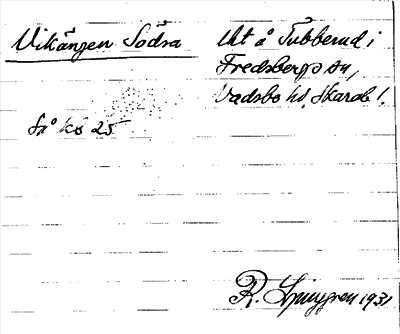 Vikängen Södra
Äkt å Tubberud i
Fredsbergs sn,
Vadsbo hd, Skarab l.
Så kb 25
R. Ljunggren 1931